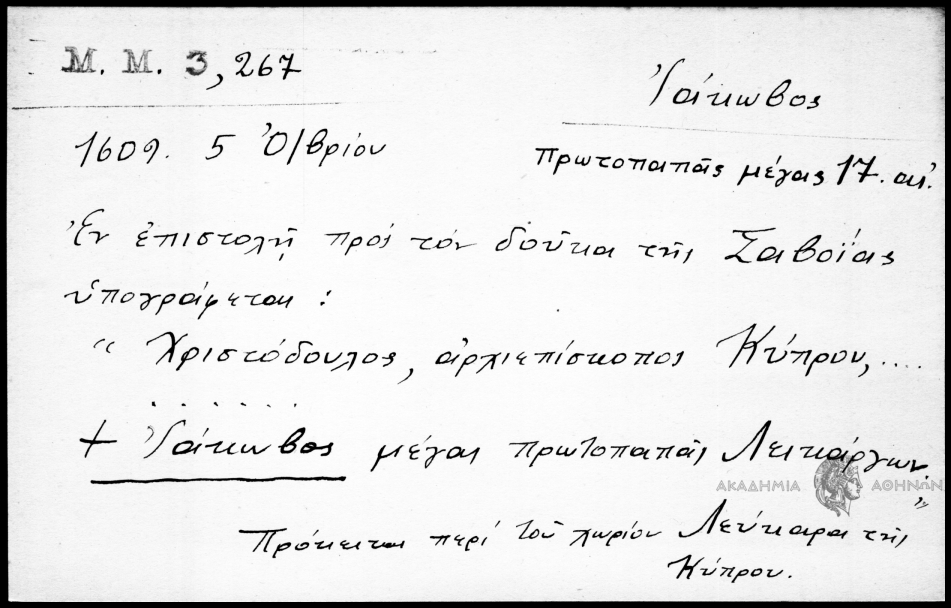 Μ. Μ. 3, 267
Ἰάκωβος
1609. 5 Ὀ/βρίου
πρωτοπαπᾶς μέγας 17. αἰ.
Ἐν ἐπιστολῇ πρὸς τὸν δοῦκα τῆς Σαβοΐας
ὑπογράφεται :
“ Χριστόδουλος, ἀρχιεπίσκοπος Κύπρου, ....
. . . . . .
+ Ἰάκωβος μέγας πρωτοπαπᾶς Λευκάρων.
ΑΚΑΔΗΜΙΑ ΑΘΗΝΩΝ
”
Πρόκειται περὶ τοῦ χωρίου Λεύκαρα τῆς
Κύπρου.